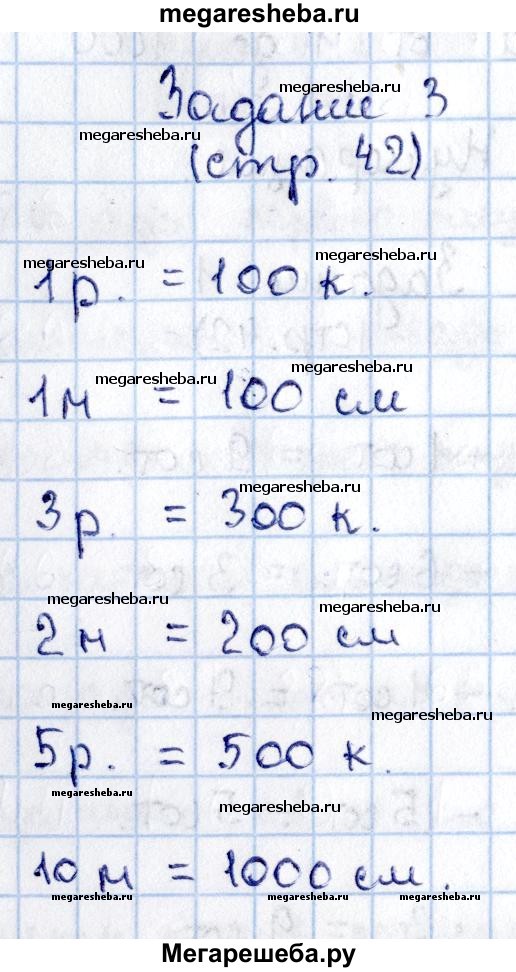 megaresheba.ru
megaresheba.ru
Задание 3
megaresheba.ru
(стр. 42)
megaresheba.ru
megaresheba.ru
1 р. = 100 к.
megaresheba.ru
megaresheba.ru
1 м = 100 см
megaresheba.ru
3 р. = 300 к.
megaresheba.ru
megaresheba.ru
2 м = 200 см
megaresheba.ru
megaresheba.ru
5 р. = 500 к.
megaresheba.ru
megaresheba.ru
10 м = 1000 см.
megaresheba.ru
megaresheba.ru
megaresheba.ru
Мегарешеба.ру